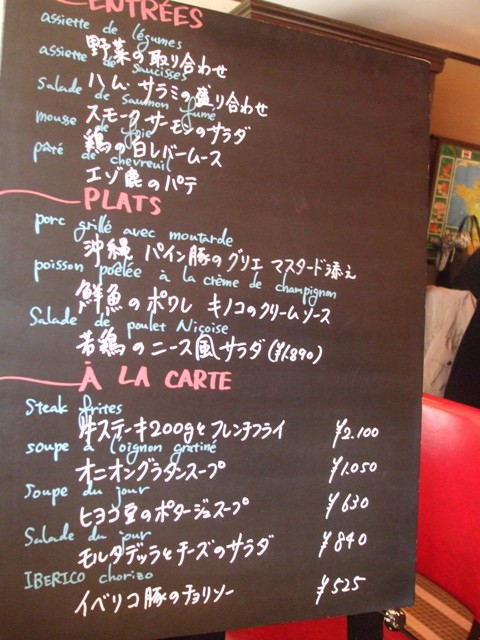 ENTRÉES
assiette de légumes
野菜の取り合わせ
assiette de saucisses
ハム・サラミの盛り合わせ
Salade de saumon fumé
スモークサーモンのサラダ
mousse de foie
鶏の白レバームース
pâté de chevreuil
エゾ鹿のパテ
PLATS
porc grillé avec moutarde
沖縄 パイン豚のグリエ マスタード添え
poisson poêlée à la crème de champignon
鮮魚のポワレ キノコのクリームソース
Salade de poulet Niçoise
若鶏のニース風サラダ (¥1.890)
À LA CARTE
Steak frites
牛ステーキ200gとフレンチフライ ¥2.100
soupe à l'oignon gratiné
オニオングラタンスープ ¥1.050
Soupe du jour
ヒヨコ豆のポタージュスープ ¥630
Salade du jour
モルタデッラとチーズのサラダ ¥840
IBERICO chorizo
イベリコ豚のチョリソー ¥525